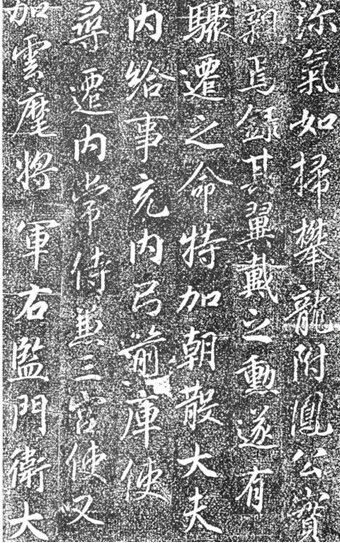 沴氣如掃攀龍附鳳公實
親焉録其翼戴之勳遂有
驟遷之命特加朝散大夫
内給事充内弓箭庫使
尋遷内常侍兼三宮使又
加雲麾將軍右監門衛大